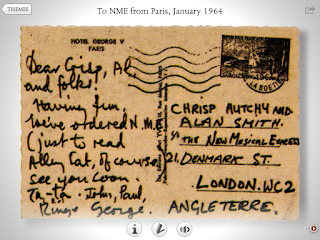 THEMES
To NME from Paris, January 1964
HOTEL GEORGE V
PARIS
Dear Crisp, Al,
and folks!
Having fun,
We've ordered N.M.E
(just to read
Alley Cat, of course
see you soon.
Ta-ta. John, Paul,
Ringo George.
LA BOETIE
CHRISP HUTCHY AND
ALAN SMITH.
c/o THE NEW MUSICAL EXPRESS
21, DENMARK ST.
LONDON. WC2
ANGLETERRE.